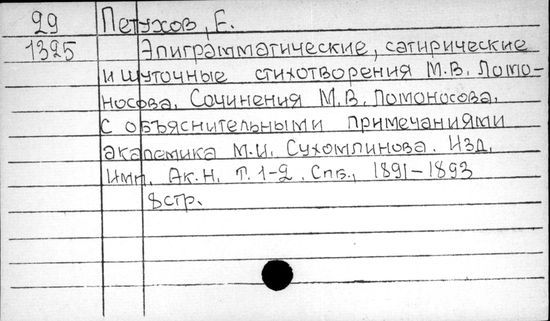 29 Петухов, Е.
1325 Эпиграмматические, сатирические
и шуточные стихотворения М.В. Ломо-
носова. Сочинения М.В. Ломоносова.
С объяснительными примечаниями
академика М.И. Сухомлинова. Изд.
Имп. Ак. Н. Т. 1-2. Спб., 1891-1893
8стр.